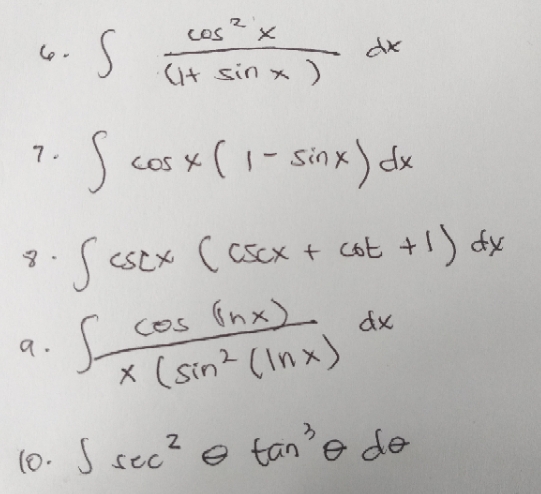 6. ∫ cos² x / (1 + sin x) dx
7. ∫ cos x (1 - sin x) dx
8. ∫ csc x (csc x + cot + 1) dx
9. ∫ cos (ln x) / x (sin² (ln x) dx
10. ∫ sec² θ tan³ θ dθ